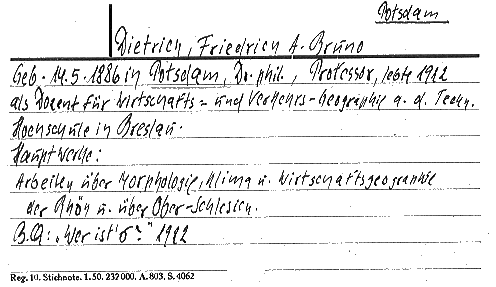 Potsdam.
Dietrich, Friedrich A. Bruno
Geb. 14.5.1886 in Potsdam, Dr. phil., Professor, lebte 1912
als Dozent für Wirtschafts- und Verkehrs-Geographie a. d. Techn.
Hochschule in Breslau.
Hauptwerke:
Arbeiten über Morphologie, Klima u. Wirtschaftsgeographie
der Rhön u. über Ober-Schlesien.
B.Q.: „Wer ist's?" 1912
Reg. 10. Stichnote. 1.50. 232000. A. 803. S. 4062